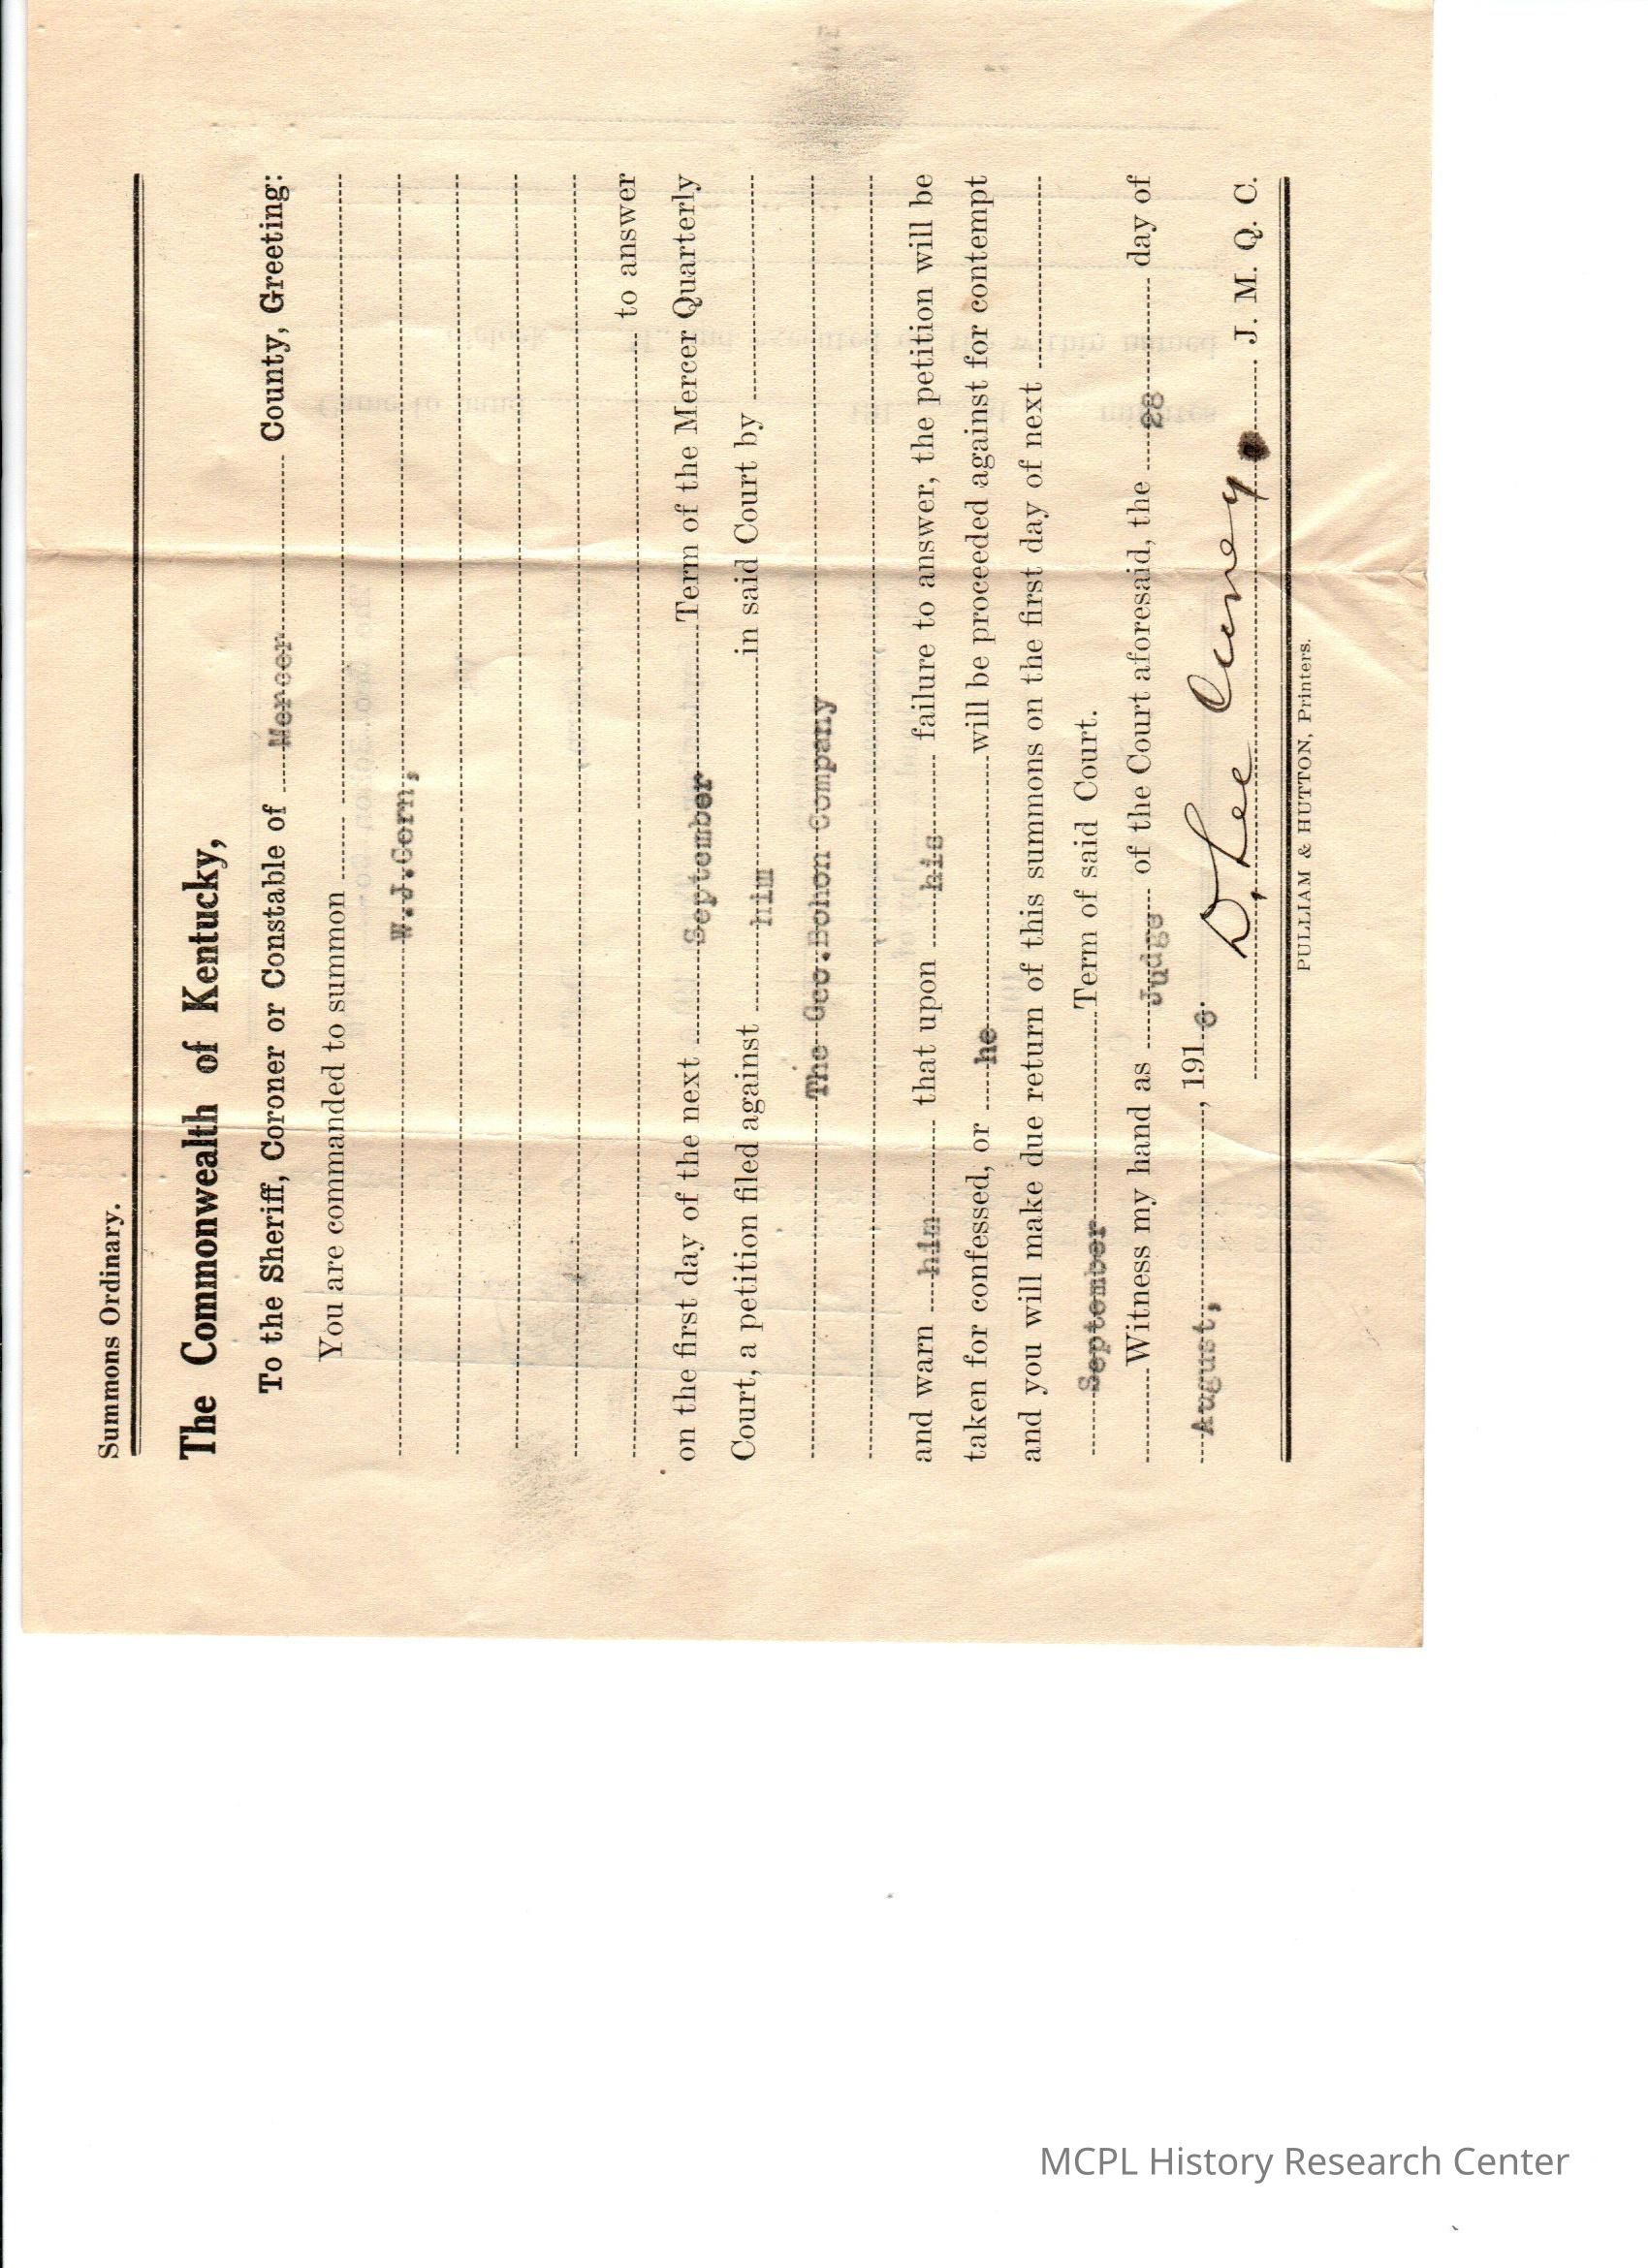 Summons Ordinary.
The Commonwealth of Kentucky,
To the Sheriff, Coroner or Constable of Mercer County, Greeting:
You are commanded to summon
W.J.Corn,
to answer
on the first day of the next September Term of the Mercer Quarterly
Court, a petition filed against him in said Court by
The Geo.Bohon Company
and warn him that upon his failure to answer, the petition will be
taken for confessed, or he will be proceeded against for contempt
and you will make due return of this summons on the first day of next
September Term of said Court.
Witness my hand as Judge of the Court aforesaid, the 28 day of
August, , 191
D, Lee Curry J. M. Q. C.
PULLIAM & HUTTON, Printers.
MCPL History Research Center